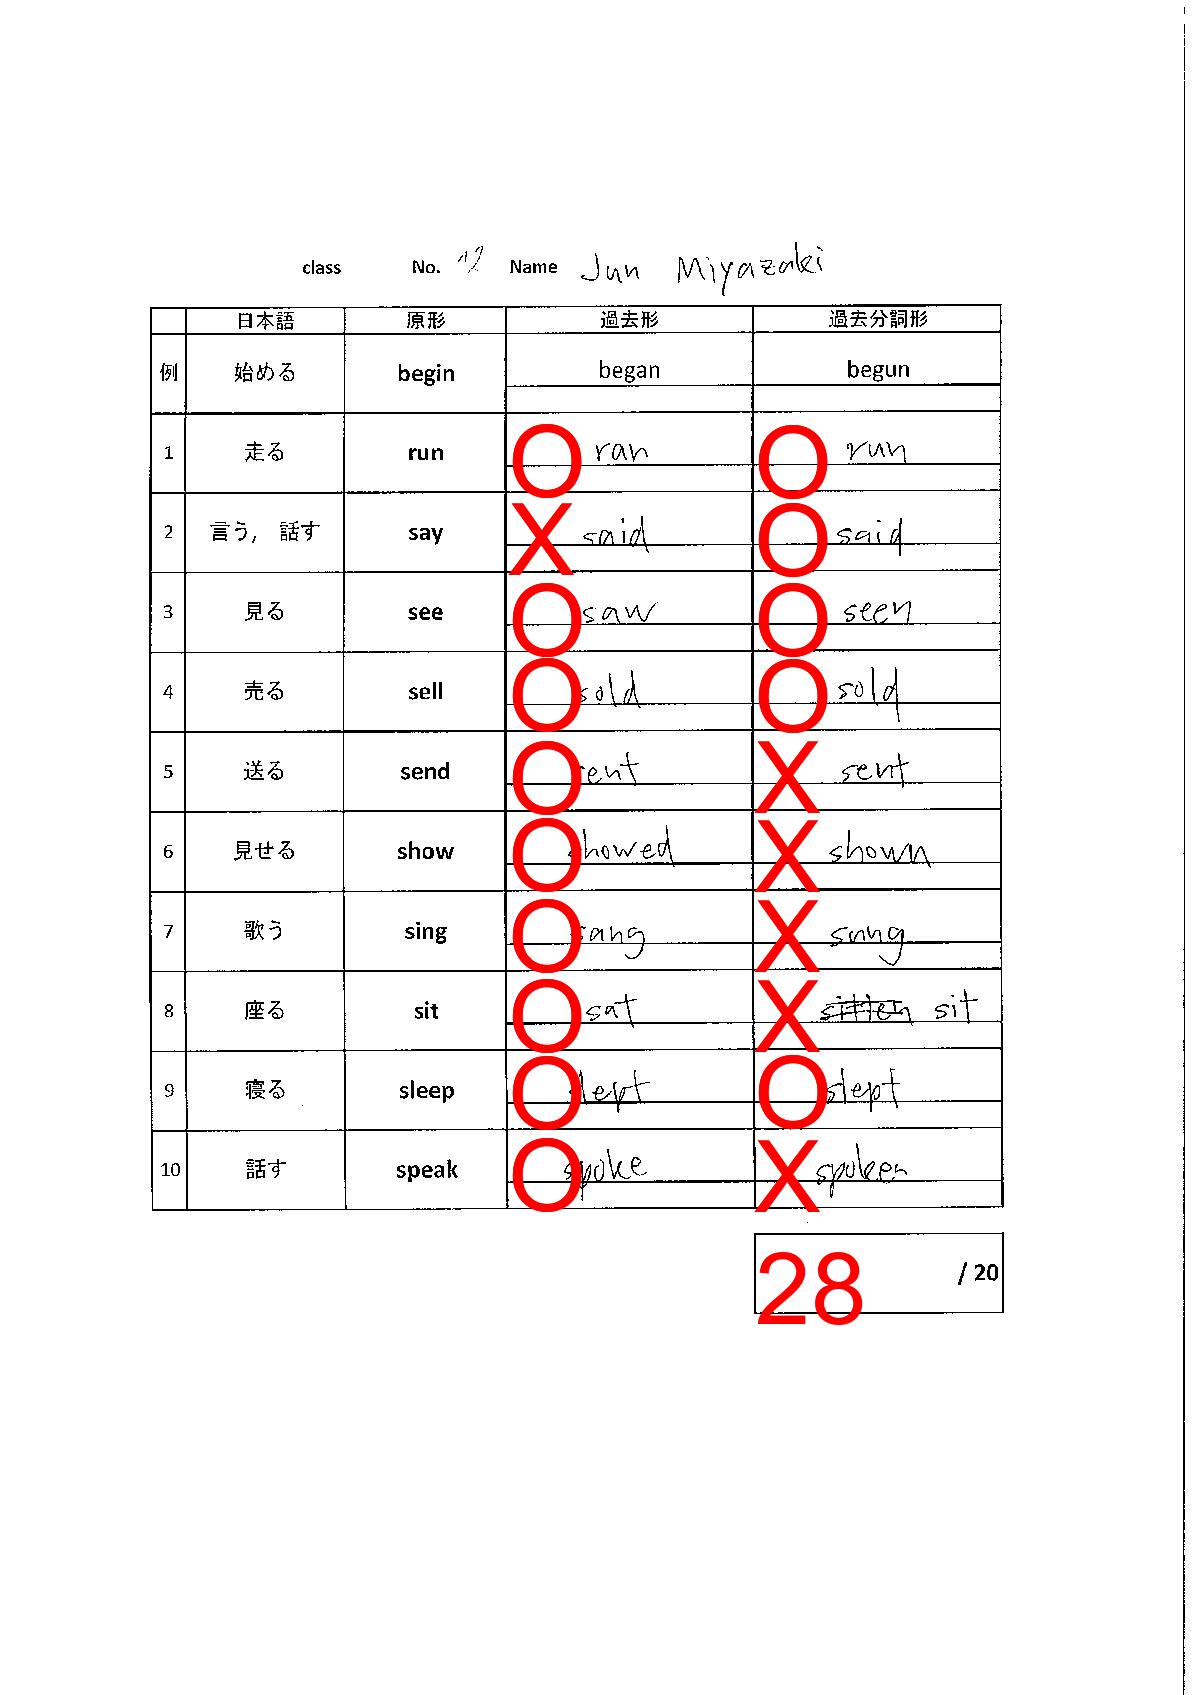 class No. 12 Name Jun Miyazaki
日本語 原形 過去形 過去分詞形
例 始める begin began begun
1 走る run O ran O run
2 言う, 話す say X said O said
3 見る see O saw O seen
4 売る sell O sold O sold
5 送る send O sent X sent
6 見せる show O showed X shown
7 歌う sing O sang X sung
8 座る sit O sat X sitten sit
9 寝る sleep O slept O slept
10 話す speak O spoke X spoken
28 / 20